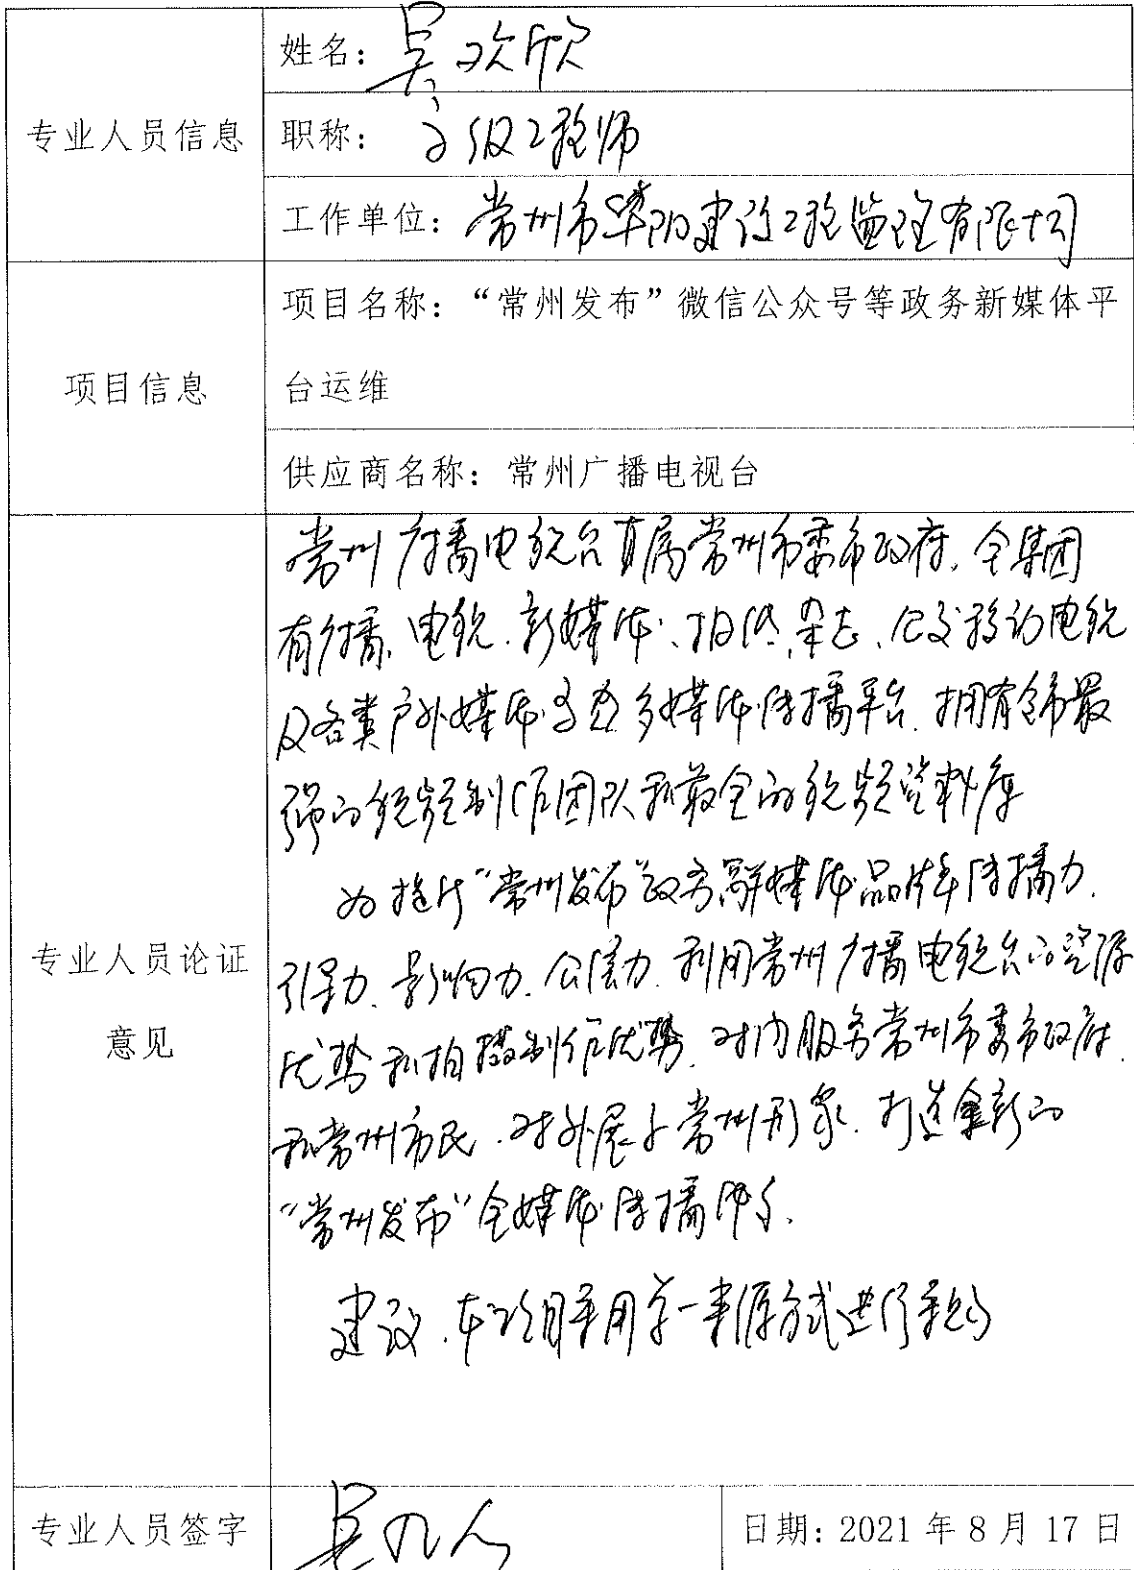 专业人员信息
姓名：吴欢欣
职称：高级工程师
工作单位：常州市华阳建设工程监理有限公司
项目信息
项目名称：“常州发布”微信公众号等政务新媒体平
台运维
供应商名称：常州广播电视台
专业人员论证
意见
常州广播电视台直属常州市委市政府，全集团
有广播、电视、新媒体、报纸、杂志、公交移动电视
及各类户外媒体等多媒体传播平台，拥有全市最
强的视频制作团队和最全的视频资料库
为提升“常州发布”政务新媒体品牌传播力、
引导力、影响力、公信力，利用常州广播电视台的资源
优势和拍摄制作优势，对内服务常州市委市政府
和常州市民，对外展示常州形象，打造全新的
“常州发布”全媒体传播体系。
建议，本项目采用单一来源方式进行采购
专业人员签字
日期：2021 年 8 月 17 日